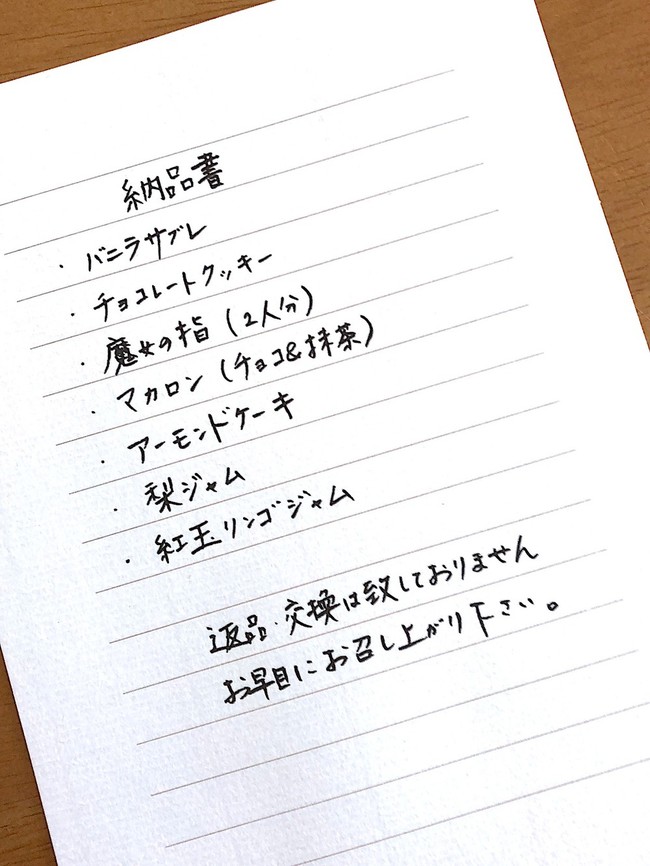 納品書
・バニラサブレ
・チョコレートクッキー
・魔女の指(2人分)
・マカロン(チョコ&抹茶)
・アーモンドケーキ
・梨ジャム
・紅玉リンゴジャム
返品・交換は致しておりません
お早目にお召し上がり下さい。